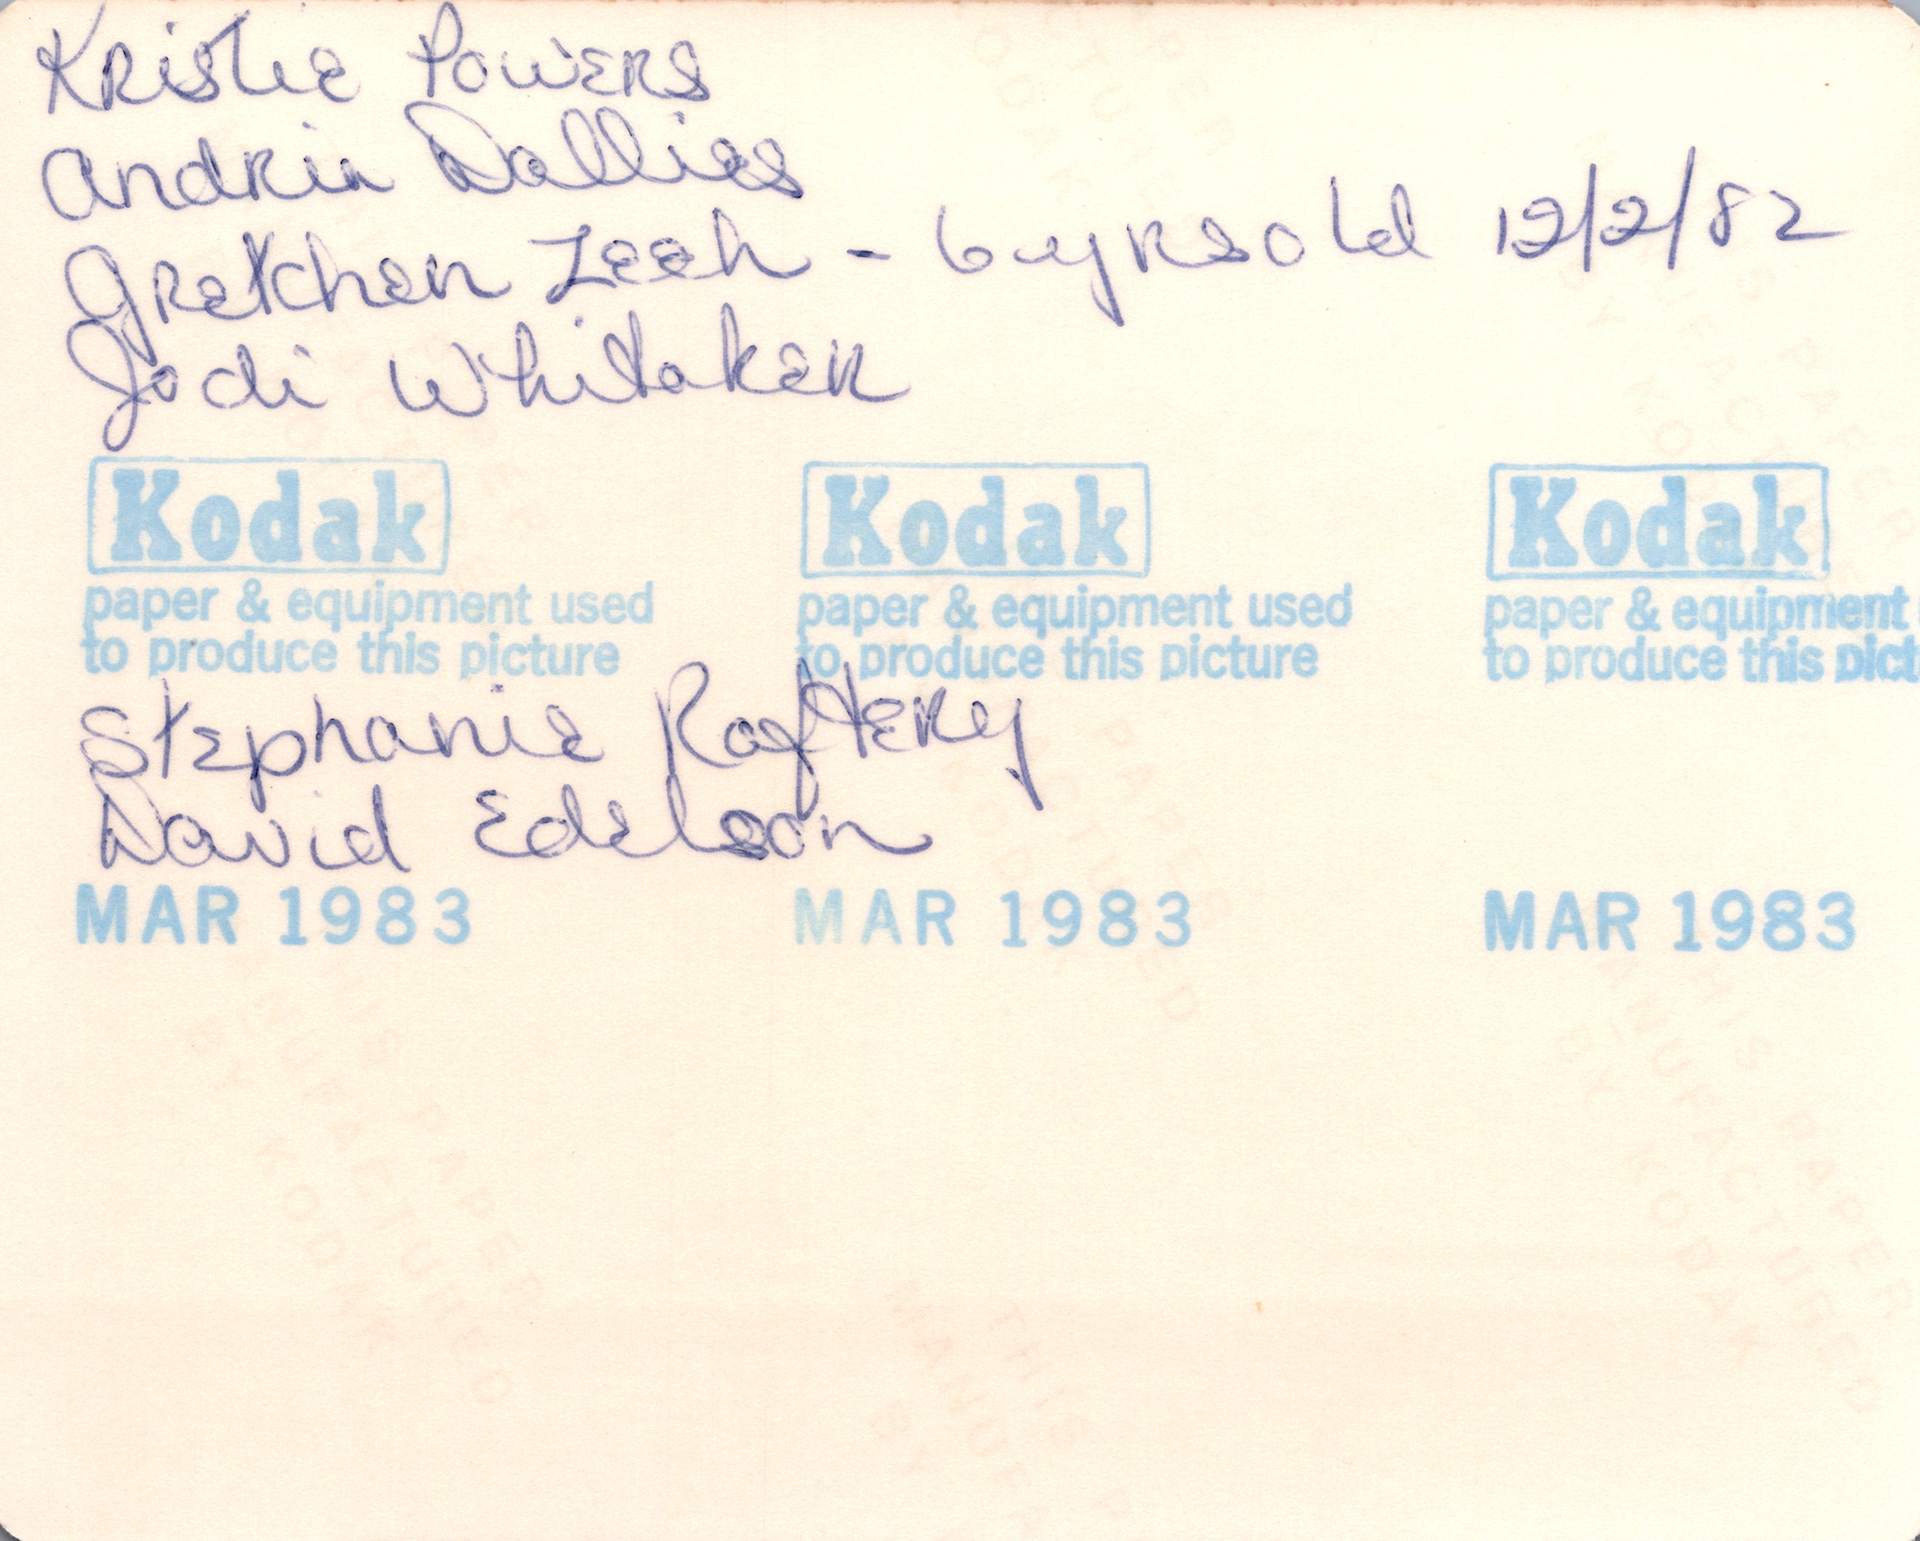 Kristie Powers
Andria Dallies
Gretchen Zeeh - 6 yrs old 12/2/82
Jodi Whitaker
Kodak Kodak Kodak
paper & equipment used paper & equipment used paper & equipment
to produce this picture to produce this picture to produce this pict
Stephanie Raftery
David Edelson
MAR 1983 MAR 1983 MAR 1983
THIS PAPER
MANUFACTURED
BY KODAK